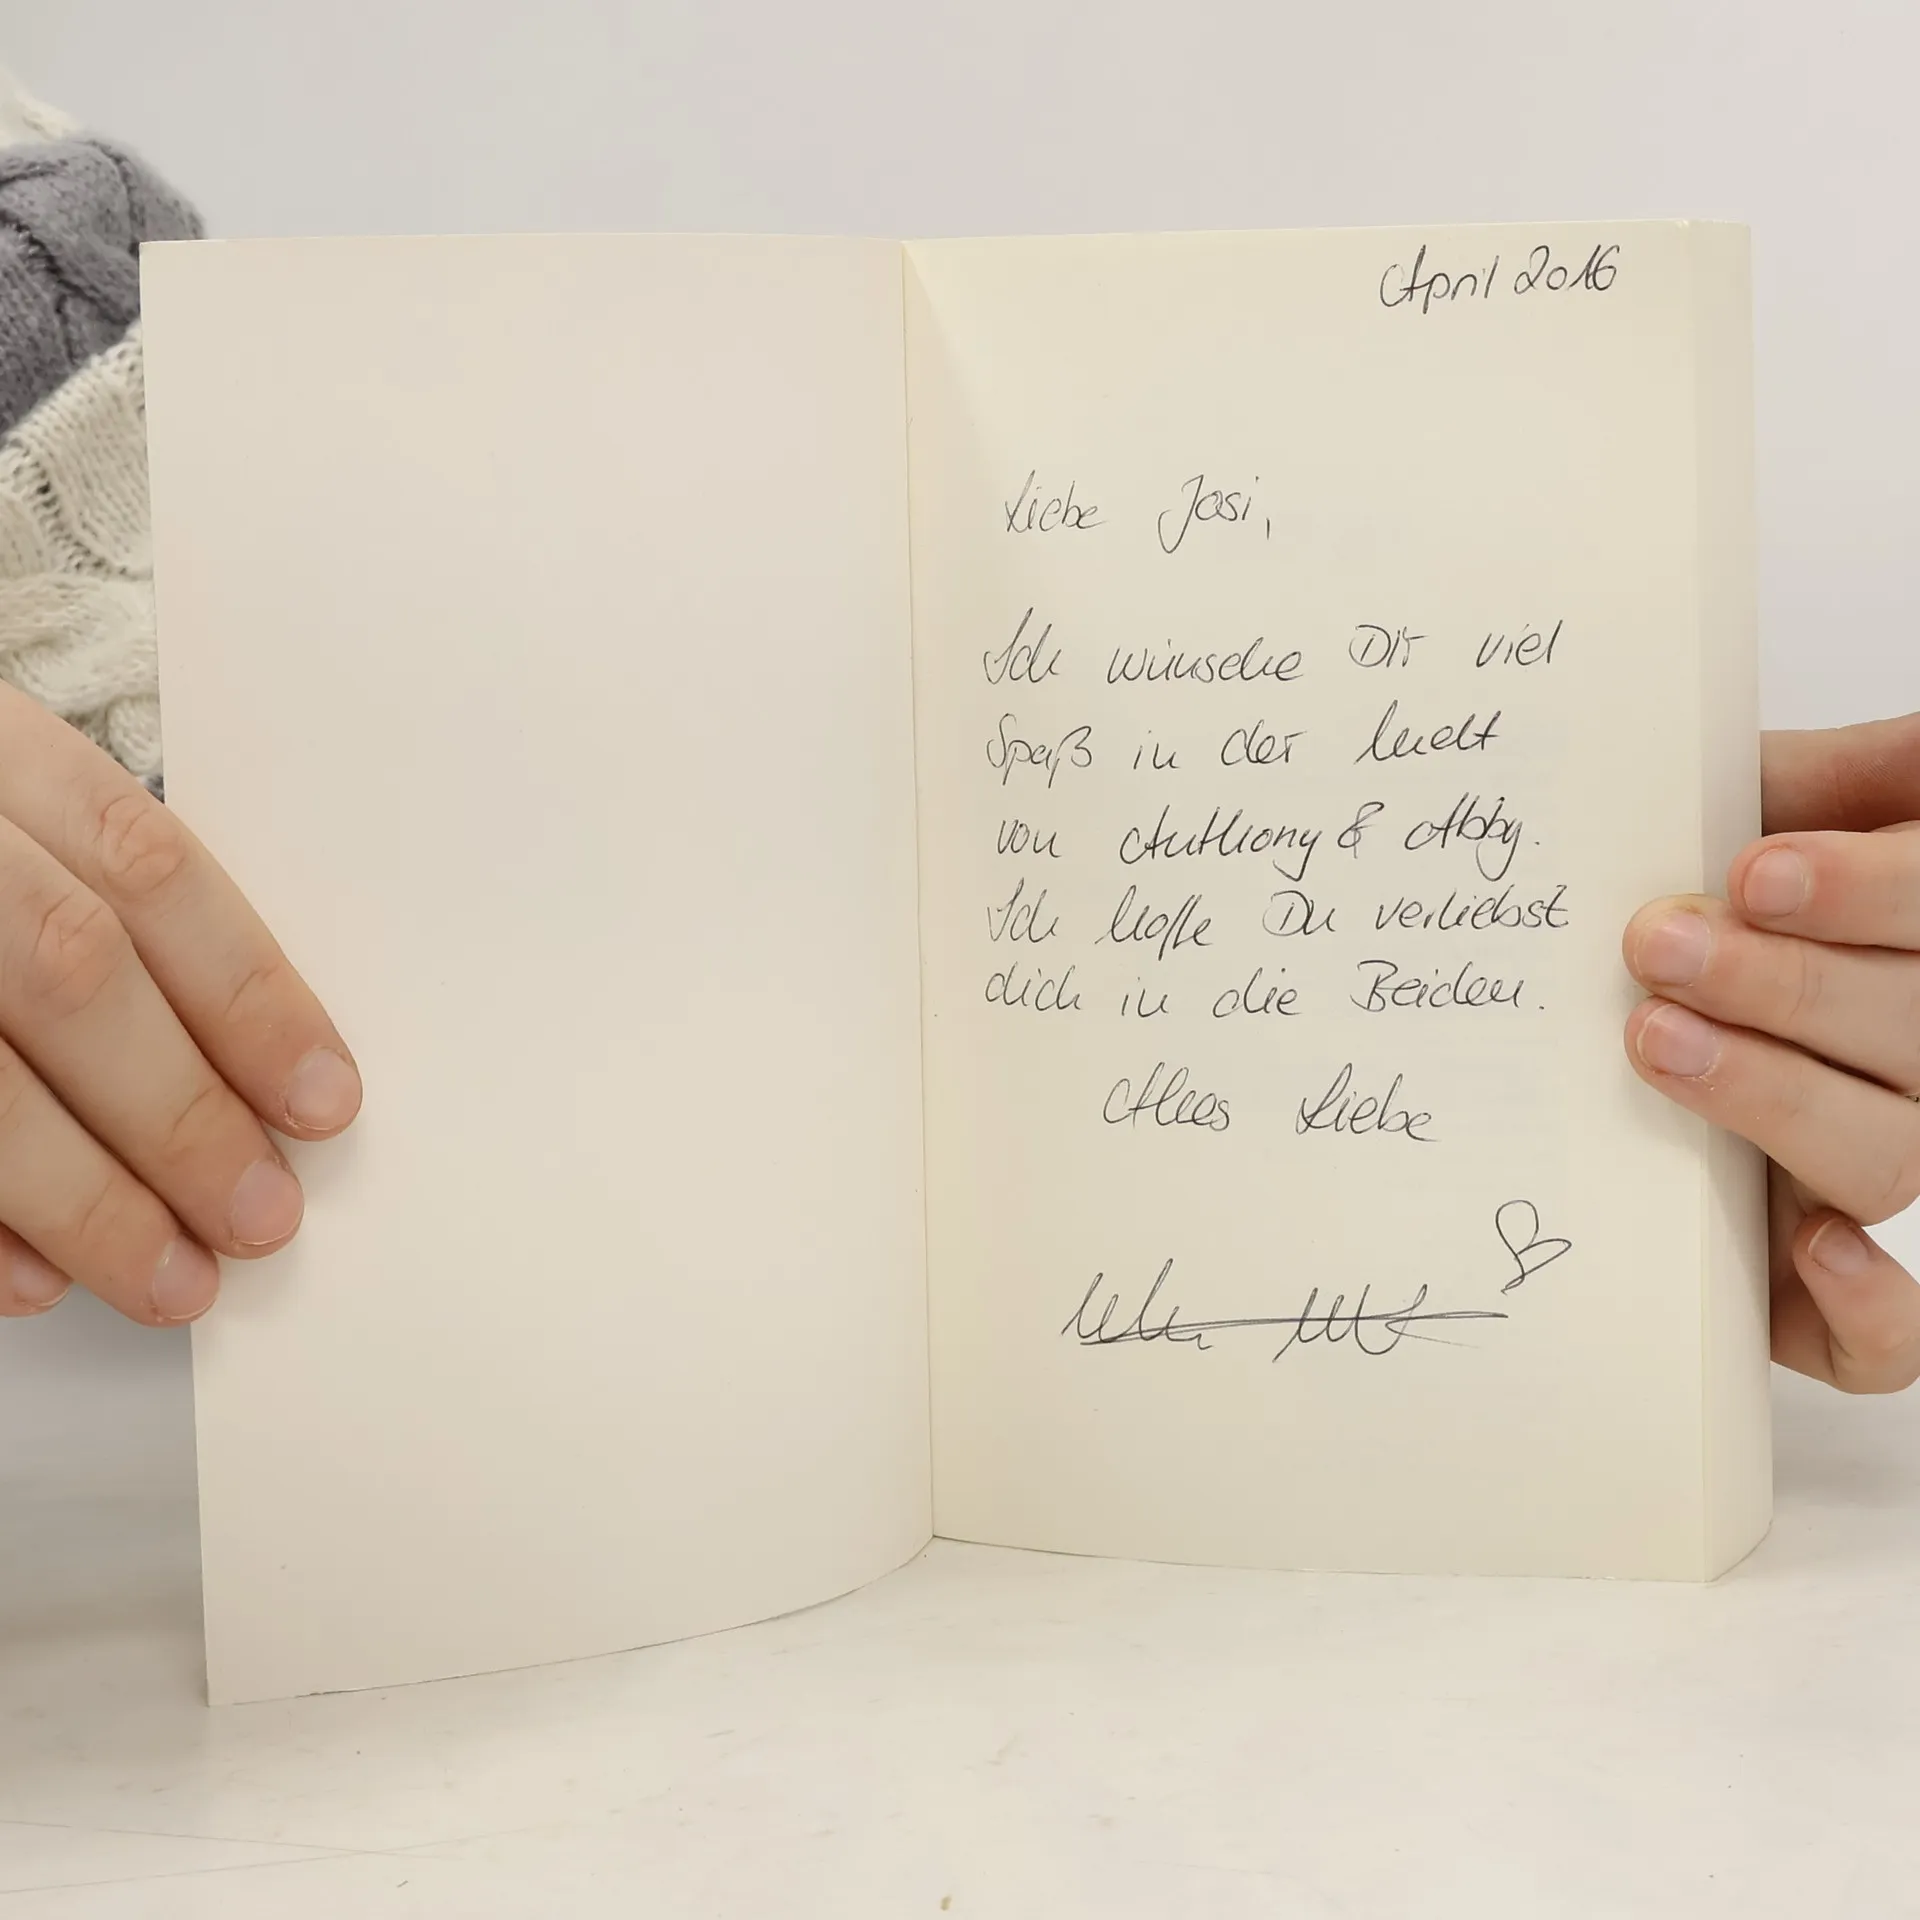 April 2016
Liebe Josi,
Ich wünsche Dir viel
Spaß in der Welt
von Anthony & Abby.
Ich hoffe Du verliebst
dich in die Beiden.
Alles Liebe